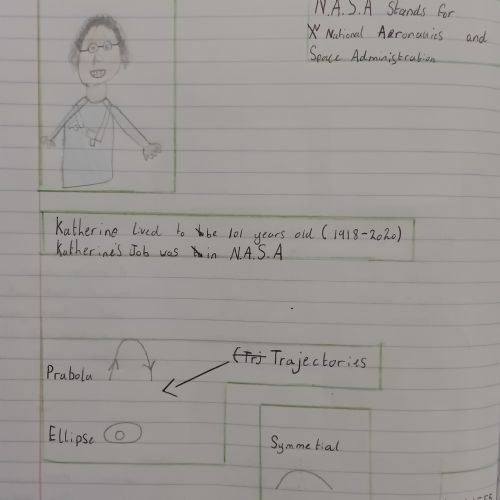 N.A.S.A Stands for
National Aeronauics and
Space Administration
Katherine lived to be 101 years old (1918-2020)
Katherine's Job was in N.A.S.A
(Trj Trajectories
Prabola
Ellipse
Symmetial